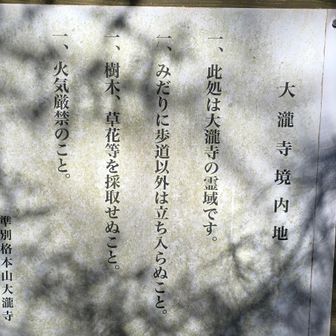 大瀧寺境内地
一、此処は大瀧寺の霊域です。
一、みだりに歩道以外は立ち入らぬこと。
一、樹木、草花等を採取せぬこと。
一、火気厳禁のこと。
準別格本山大瀧寺